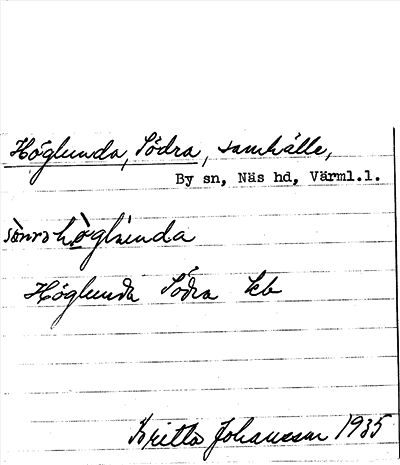 Höglunda, Södra, samhälle,
By sn, Näs hd, Värml.l.
Höglunda Södra kb
Britta Johansson 1935